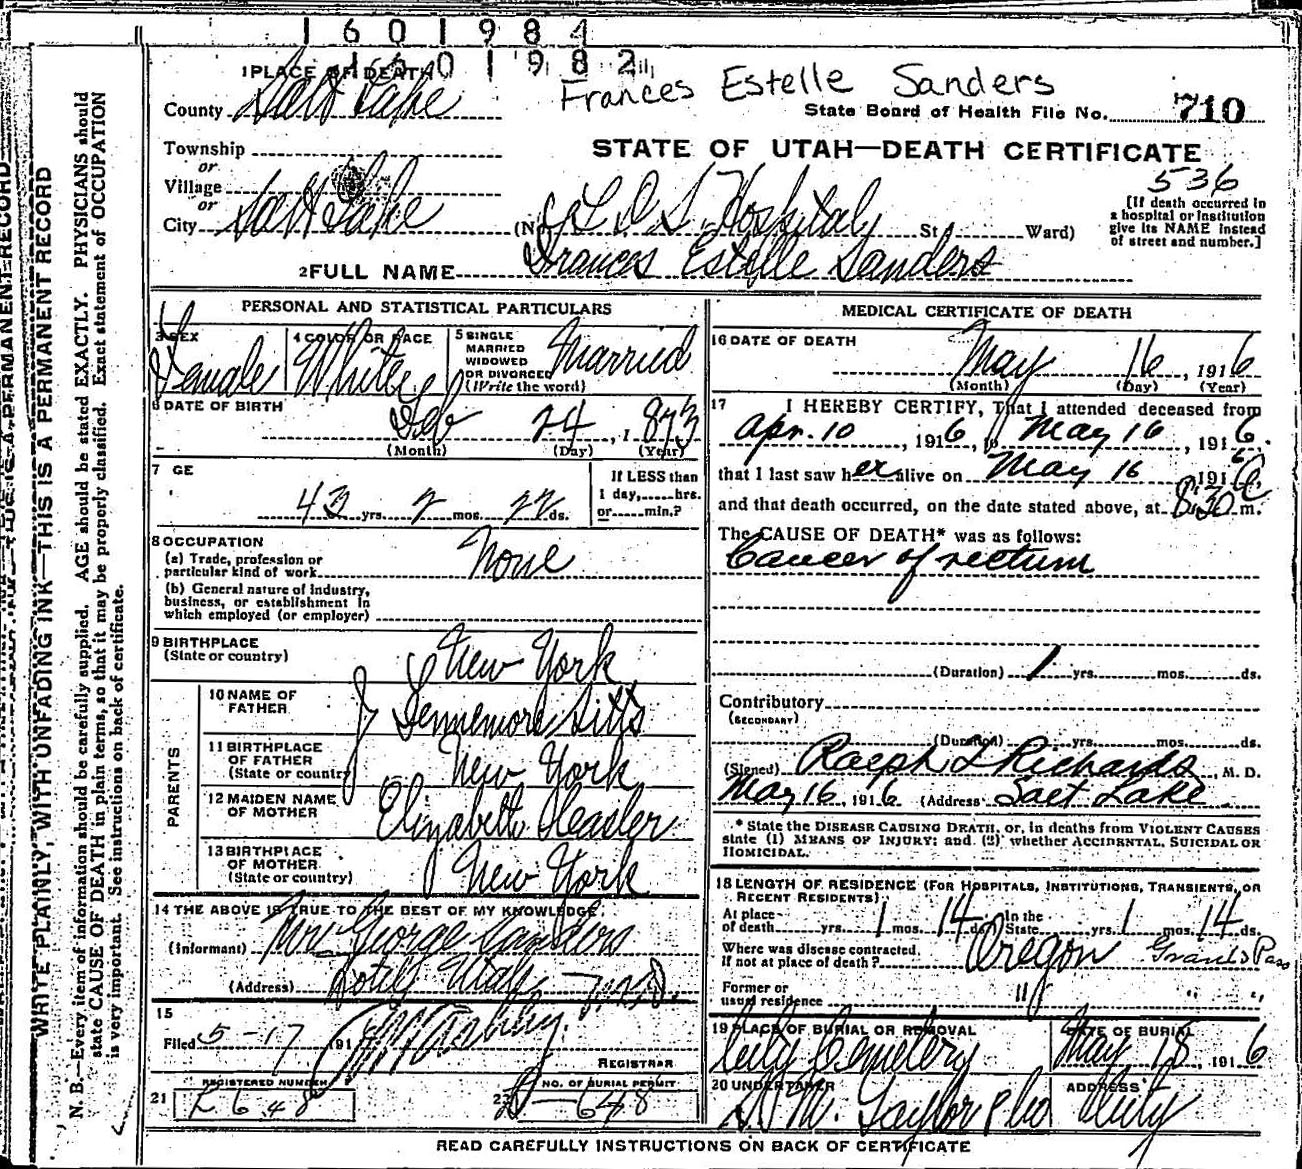 1601984
1601982
1 PLACE OF DEATH
Frances Estelle Sanders
County Salt Lake
State Board of Health File No. 710
Township
or
STATE OF UTAH—DEATH CERTIFICATE
Village
or
536
City Salt Lake (No L D S Hospital St Ward)
[If death occurred in a hospital or institution give its NAME instead of street and number.]
2 FULL NAME Frances Estelle Sanders
PERSONAL AND STATISTICAL PARTICULARS
3 SEX Female
4 COLOR OR RACE White
5 SINGLE MARRIED WIDOWED OR DIVORCED (Write the word) Married
6 DATE OF BIRTH Feb 24, 1873
(Month) (Day) (Year)
7 GE
43 yrs. 2 mos. 22 ds.
If LESS than 1 day, hrs. or min.?
8 OCCUPATION
(a) Trade, profession or particular kind of work None
(b) General nature of industry, business, or establishment in which employed (or employer)
9 BIRTHPLACE
(State or country) New York
PARENTS
10 NAME OF FATHER J Sitts
11 BIRTHPLACE OF FATHER (State or country) New York
12 MAIDEN NAME OF MOTHER Elizabeth
13 BIRTHPLACE OF MOTHER (State or country) New York
14 THE ABOVE IS TRUE TO THE BEST OF MY KNOWLEDGE
(Informant) George Sanders
(Address) Utah
15
Filed 5-17 191
REGISTRAR
21 REGISTERED NUMBER
22 NO. OF BURIAL PERMIT 648
MEDICAL CERTIFICATE OF DEATH
16 DATE OF DEATH
May 16, 1916
(Month) (Day) (Year)
17 I HEREBY CERTIFY, That I attended deceased from
Apr. 10, 1916, to May 16, 1916.
that I last saw her alive on May 16 1916
and that death occurred, on the date stated above, at 8:30 m.
The CAUSE OF DEATH* was as follows:
Cancer of rectum
(Duration) 1 yrs. mos. ds.
Contributory
(SECONDARY)
(Duration) yrs. mos. ds.
(Signed) Ralph L Richards, M. D.
May 16, 1916 (Address) Salt Lake
* State the DISEASE CAUSING DEATH, or, in deaths from VIOLENT CAUSES
state (1) MEANS OF INJURY; and (2) whether ACCIDENTAL, SUICIDAL OR
HOMICIDAL.
18 LENGTH OF RESIDENCE (FOR HOSPITALS, INSTITUTIONS, TRANSIENTS, OR
RECENT RESIDENTS)
At place of death yrs. 1 mos. 14 ds. In the State yrs. 1 mos. 14 ds.
Where was disease contracted, If not at place of death? Oregon Grants Pass
Former or usual residence " " "
19 PLACE OF BURIAL OR REMOVAL City Cemetery
DATE OF BURIAL May 18, 1916
20 UNDERTAKER S. M. Taylor & Co
ADDRESS City
READ CAREFULLY INSTRUCTIONS ON BACK OF CERTIFICATE
WRITE PLAINLY, WITH UNFADING INK—THIS IS A PERMANENT RECORD
N. B.—Every item of information should be carefully supplied. AGE should be stated EXACTLY. PHYSICIANS should
state CAUSE OF DEATH in plain terms, so that it may be properly classified. Exact statement of OCCUPATION
is very important. See instructions on back of certificate.